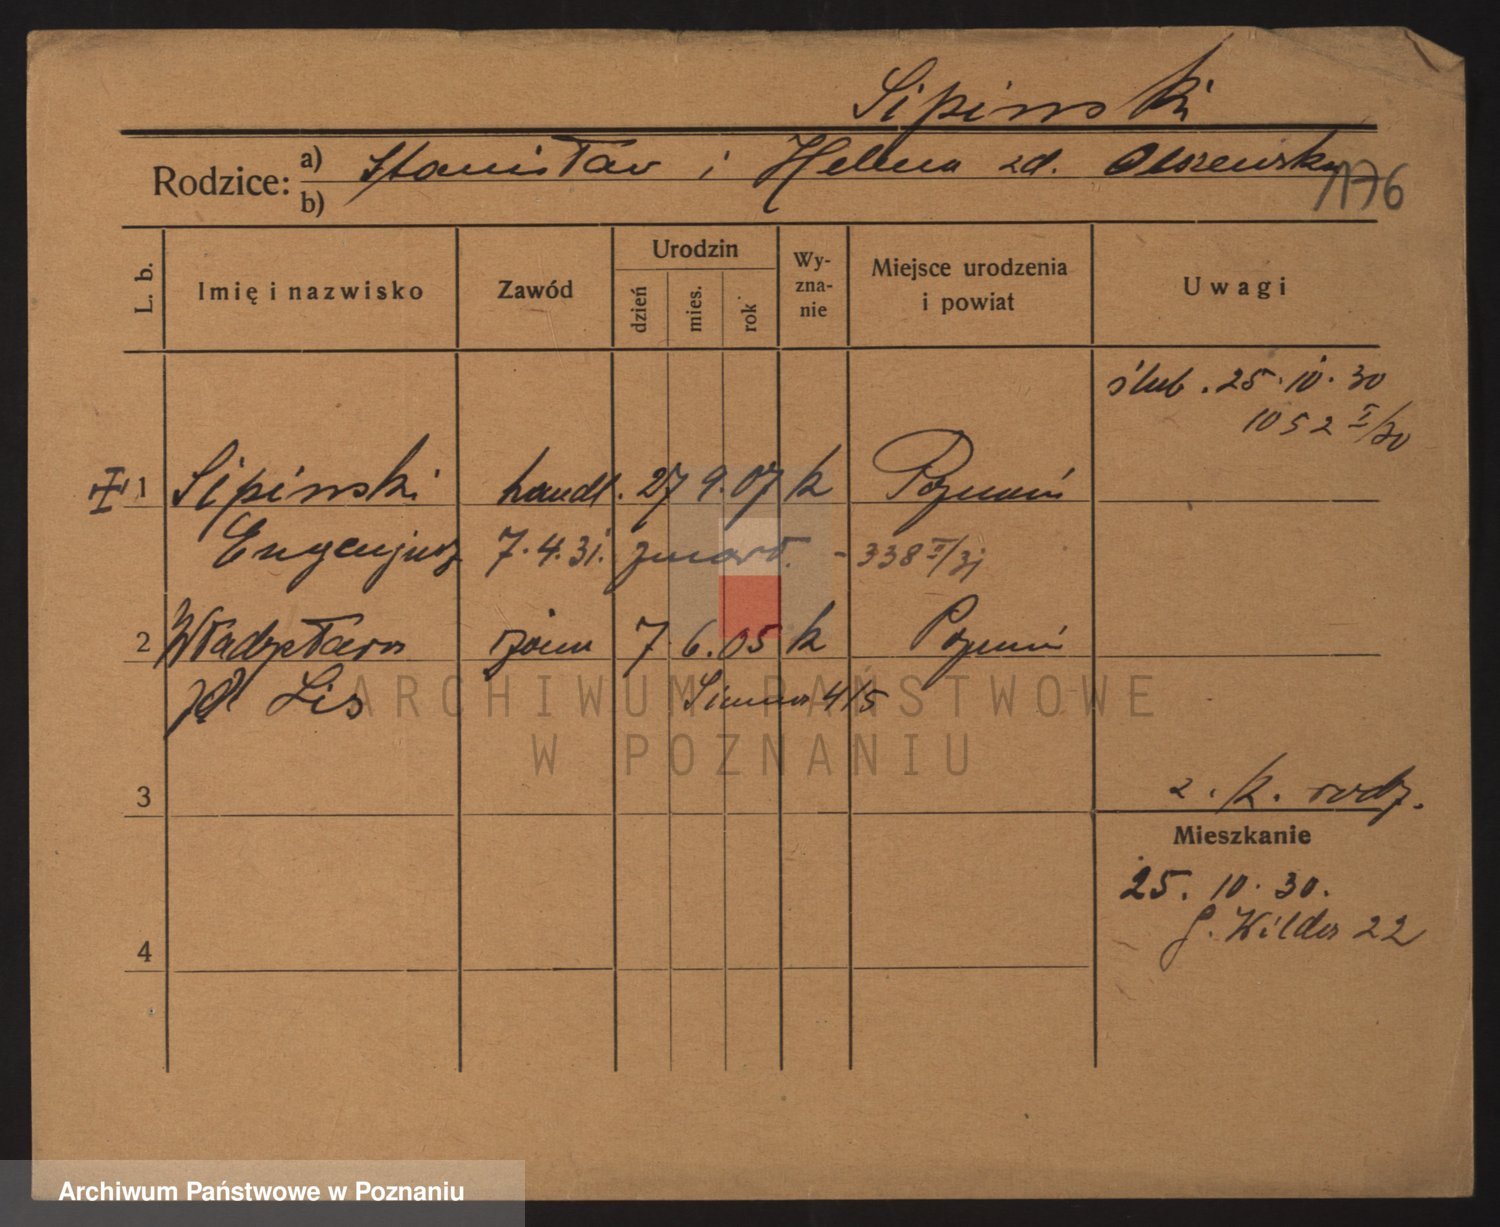 Sipinski
Rodzice: a) Stanisław i Helena zd. Olszewska
b)
1176
L. b. Imię i nazwisko Zawód Urodzin dzień mies. rok Wy-zna-nie Miejsce urodzenia i powiat Uwagi
ślub. 25.10.30
1052 I/30
1 Sipinski handl. 27 9. 07 k Poznań
Eugenjusz 7.4.31. zmarł. - 338 II/31
2 Władysława żona 7. 6. 05 k Poznań
Lis 4/5
ARCHIWUM PAŃSTWOWE
W POZNANIU
3
2. k. rodz.
Mieszkanie
25. 10. 30.
G. Wilda 22
4
Archiwum Państwowe w Poznaniu